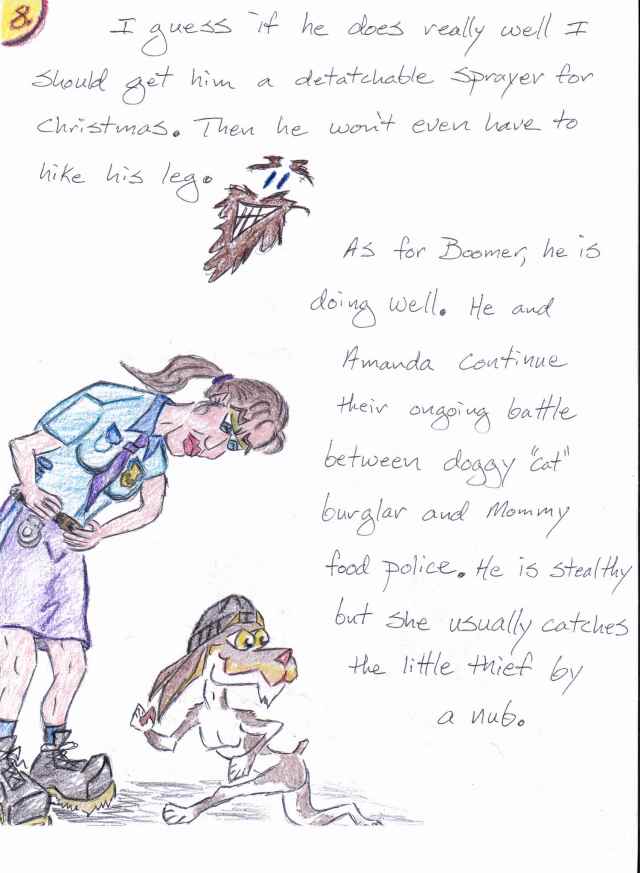 8.
I guess if he does really well I
should get him a detatchable sprayer for
Christmas. Then he won't even have to
hike his leg.
As for Boomer, he is
doing well. He and
Amanda continue
their ongoing battle
between doggy "cat"
burglar and Mommy
food police. He is stealthy
but she usually catches
the little thief by
a nub.